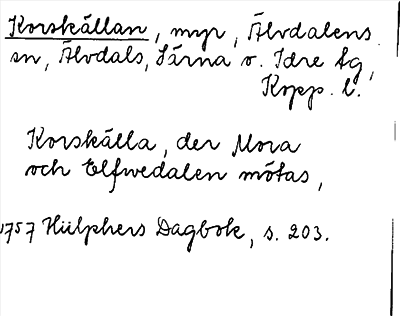 Korskällan, myr, Älvdalens
sn, Älvdals, Särna o. Idre tg,
Kopp. l.
Korskälla, der Mora
och Elfwedalen mötas,
1757 Hülphers Dagbok, s. 203.